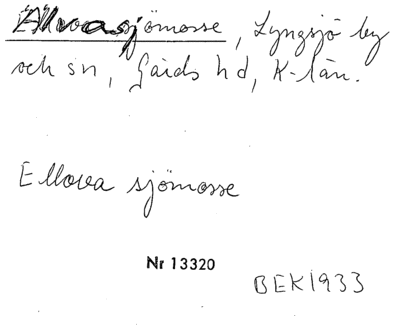 Ällvasjömosse, Lyngsjö by
och sn, Gärds hd, K-län.
Ellova sjömosse
Nr 13320
BEK 1933